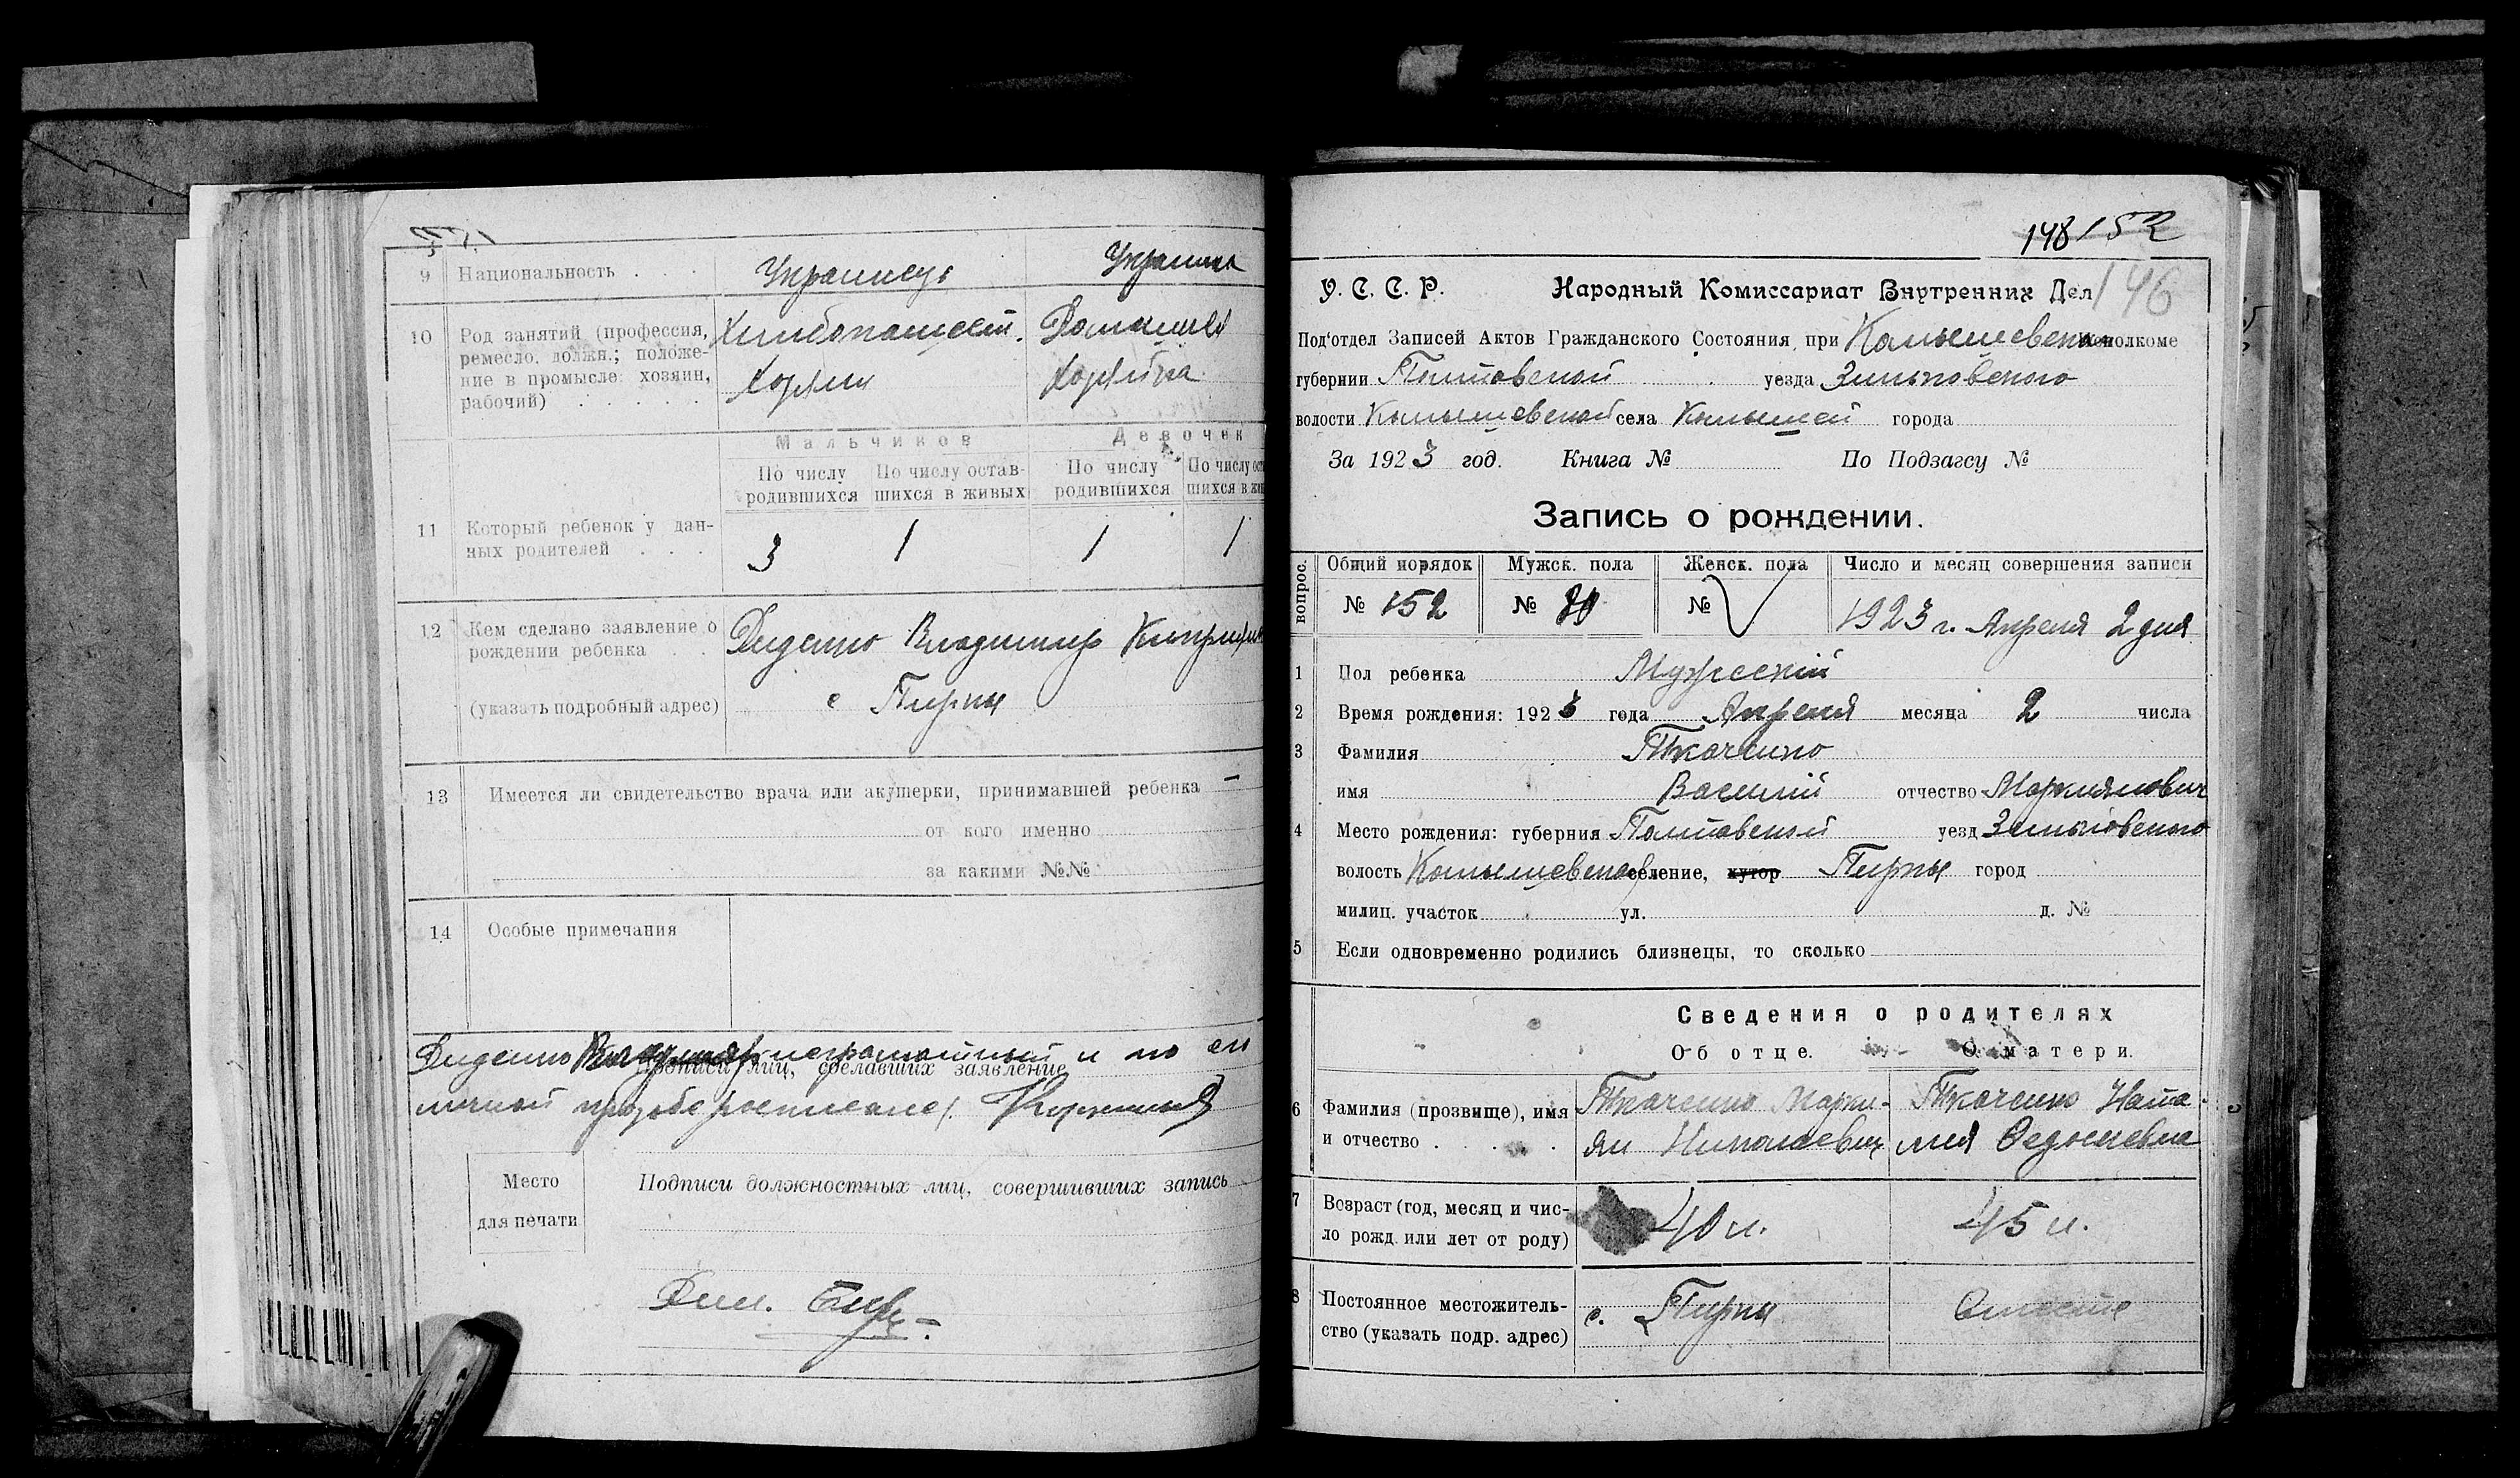 9 Национальность . . . Украинец Украинка
10 Род занятий (профессия, Хлибопашест. Домашня
ремесло, должн.; положе-
ние в промысле: хозяин, Хозяин Хозяйка
рабочий) . . . . .
Мальчиков Девочек
По числу По числу остав- По числу По числу ост
родившихся шихся в живых родившихся шихся в жи
11 Который ребенок у дан- 3 1 1 1
ных родителей . . .
12 Кем сделано заявление о Диденко Владимир
рождении ребенка . .
(указать подробный адрес) с Пирки
13 Имеется ли свидетельство врача или акушерки, принимавшей ребенка —
от кого именно
за какими №№
14 Особые примечания
Диденко неграмотный и по ей
Подписи лиц, сделавших заявление
личной прозьбе росписалс
Место Подписи должностных лиц, совершивших запись
для печати
148 152
У. С. С. Р. Народный Комиссариат Внутренних Дел 146
Под'отдел Записей Актов Гражданского Состояния при Камышевском исполкоме
губернии Полтавской уезда Зиньковского
волости Камышевской села Камышей города
За 1923 год. Книга № По Подзагсу №
Запись о рождении.
вопрос. Общий порядок Мужск. пола Женск. пола Число и месяц совершения записи
№ 152 № № 1923 г. Апреля 2 дня
1 Пол ребенка Мужеский
2 Время рождения: 1923 года Апреля месяца 2 числа
3 Фамилия Ткаченко
имя Василий отчество Маркиянович
4 Место рождения: губерния Полтавской уезд Зиньковского
волость Камышевской селение, хутор Пирки город
милиц. участок ул. д. №
5 Если одновременно родились близнецы, то сколько
Сведения о родителях
Об отце. О матери.
6 Фамилия (прозвище), имя Ткаченко Марки- Ткаченко Ната-
и отчество . . . . ян Николаевич лия Федосиевна
7 Возраст (год, месяц и чис- 40 л. 45 л.
ло рожд. или лет от роду)
8 Постоянное местожитель- с. Пирки Вместе
ство (указать подр. адрес)